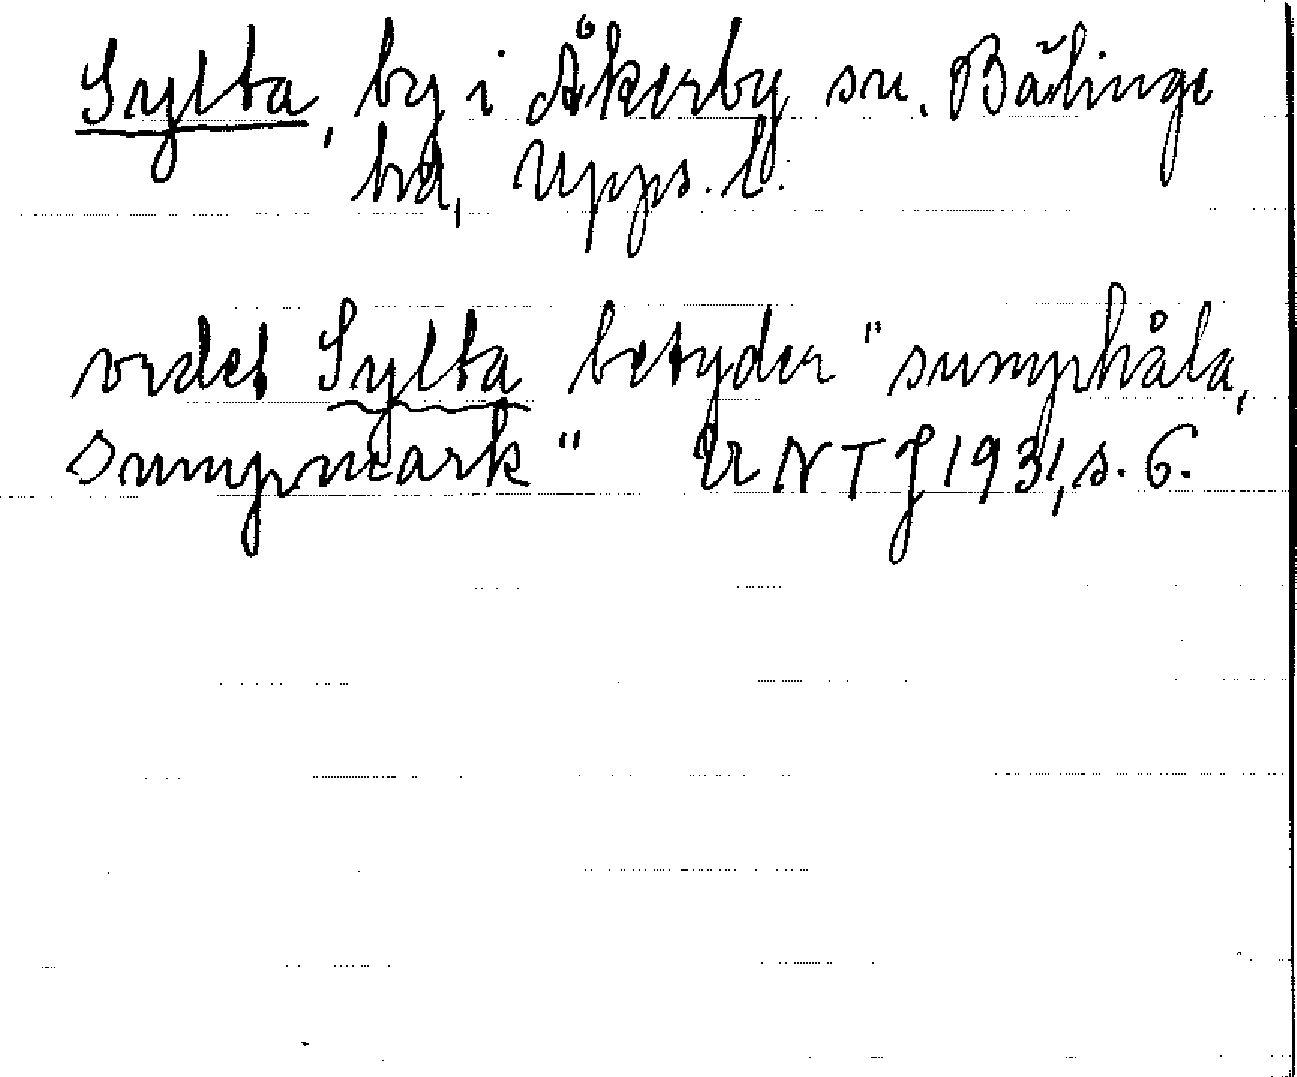 Sylta, by i Åkerby sn. Bälinge
hd, Upps. l.
ordet Sylta betyder "sumphåla,
sumpmark" Ur NTJ 1931, s. 6.